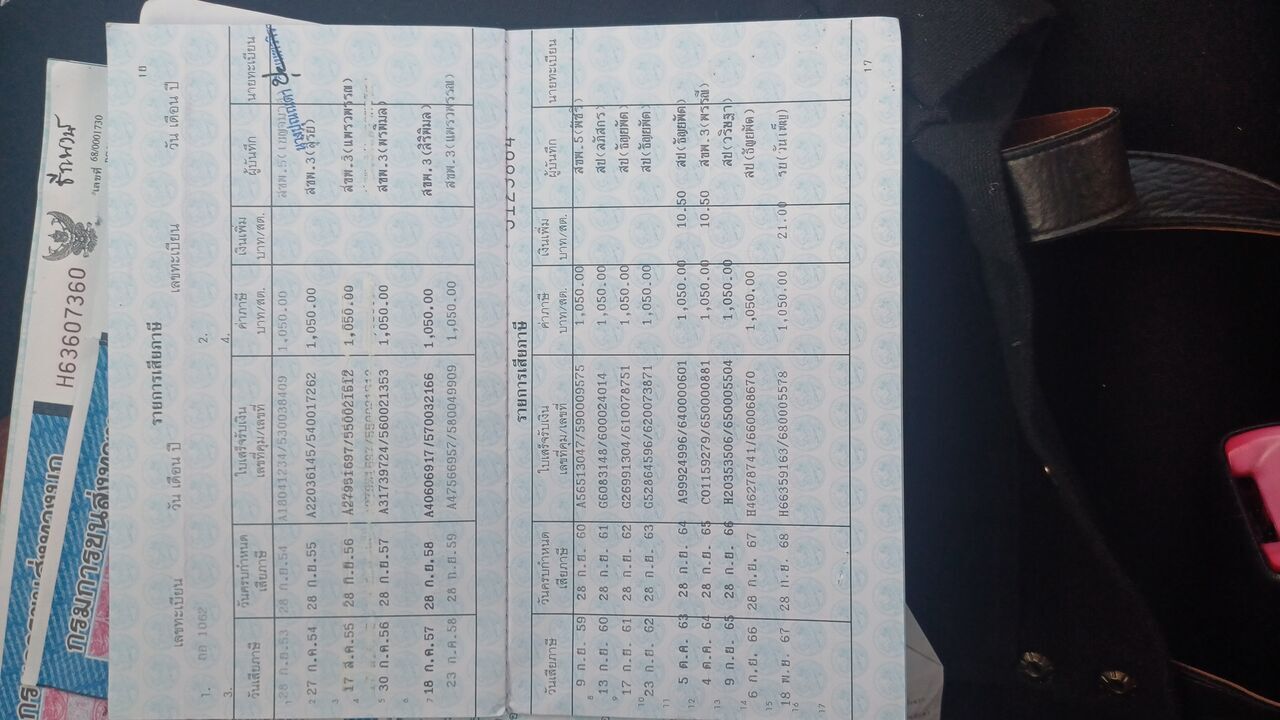 18
รายการเสียภาษี
เลขทะเบียน วัน เดือน ปี เลขทะเบียน วัน เดือน ปี
1. 1062 2.
3. 4.
วันเสียภาษี วันครบกำหนดเสียภาษี ใบเสร็จรับเงิน เลขที่คุม/เลขที่ ค่าภาษี บาท/สต. เงินเพิ่ม บาท/สต. ผู้บันทึก นายทะเบียน
1 28 ก.ย.53 28 ก.ย.54 A18041234/530038409 1,050.00 สขพ.5
2 27 ก.ค.54 28 ก.ย.55 A22036145/540017262 1,050.00 สขพ.3(สุรีย์)
3
4 17 ส.ค.55 28 ก.ย.56 A27951697/550021612 1,050.00 สขพ.3(แพรวพรรณ)
5 30 ก.ค.56 28 ก.ย.57 A31739724/560021353 1,050.00 สขพ.3(พรพิมล)
6
7 18 ก.ค.57 28 ก.ย.58 A40606917/570032166 1,050.00 สขพ.3(สิริพิมล)
23 ก.ค.58 28 ก.ย.59 A47566957/580049909 1,050.00 สขพ.3(แพรวพรรณ)
17
รายการเสียภาษี
วันเสียภาษี วันครบกำหนดเสียภาษี ใบเสร็จรับเงิน เลขที่คุม/เลขที่ ค่าภาษี บาท/สต. เงินเพิ่ม บาท/สต. ผู้บันทึก นายทะเบียน
8 9 ก.ย. 59 28 ก.ย. 60 A56513047/590009575 1,050.00 สขพ.5(พัชรี)
9 13 ก.ย. 60 28 ก.ย. 61 G6083148/600024014 1,050.00 สป(ลภัสกร)
17 ก.ย. 61 28 ก.ย. 62 G26991304/610078751 1,050.00 สป(ธัญยพัต)
10 23 ก.ย. 62 28 ก.ย. 63 G52864596/620073871 1,050.00 สป(ธัญยพัต)
11
12 5 ต.ค. 63 28 ก.ย. 64 A99924996/640000601 1,050.00 10.50 สป(ธัญยพัต)
13 4 ต.ค. 64 28 ก.ย. 65 C01159279/650000881 1,050.00 10.50 สขพ.3(พรรณี)
9 ก.ย. 65 28 ก.ย. 66 H20353506/650005504 1,050.00 สป(วริษฐา)
14 6 ก.ย. 66 28 ก.ย. 67 H46278741/660068670 1,050.00 สป(ธัญยพัต)
15
16 18 พ.ย. 67 28 ก.ย. 68 H66359163/680005578 1,050.00 21.00 รป(วันเพ็ญ)
17
เลขที่ 68/0001730
H63607360
กรมการขนส่งทางบก